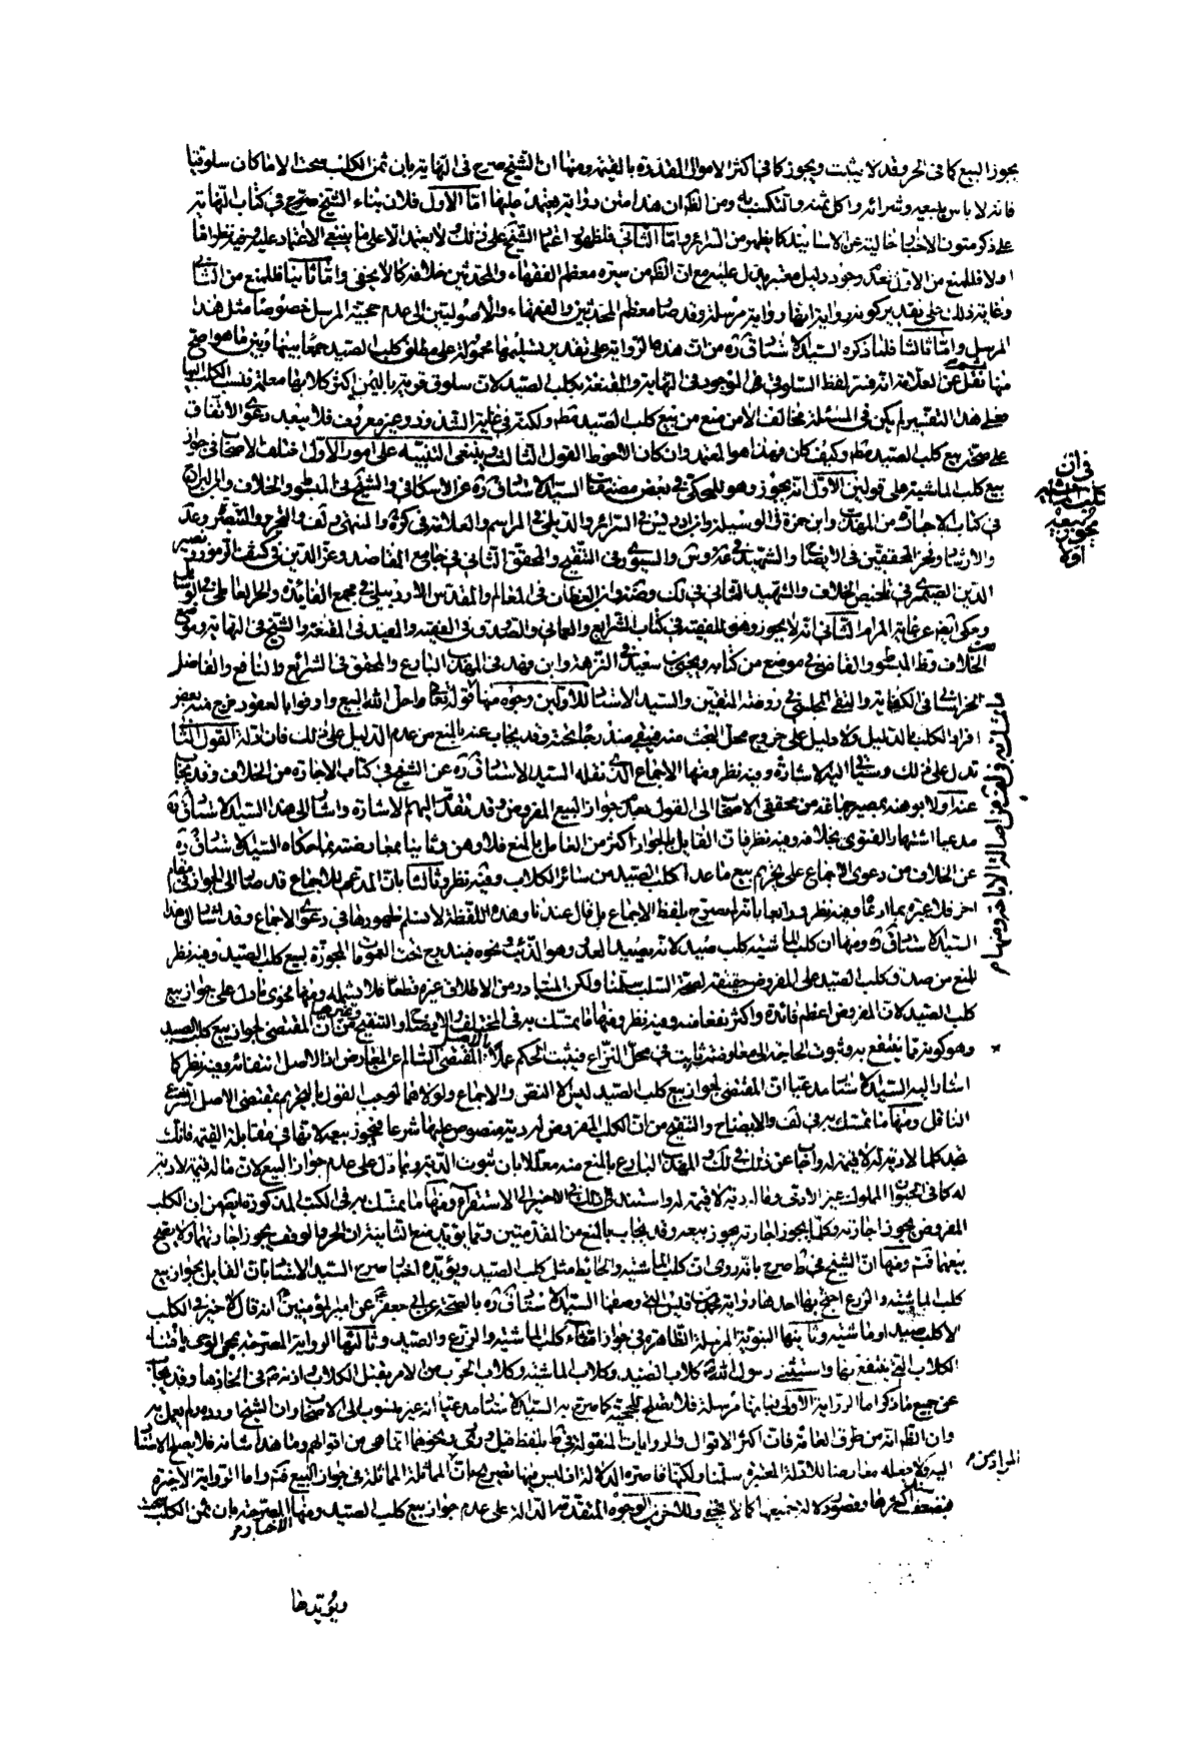 يجوز البيع كما فى الحر وقد لا يثبت ويجوز كما فى اكثر الاموال المقدرة بالقيمة ومنها ان الشيخ صرح فى النهاية بان ثمن الكلب سحت الا ما كان سلوقيا
فانه لا باس ببيعه وشرائه واكل ثمنه والتكسب به ومن الظ ان هذا متن رواية يعتمد عليها اما الاول فلان بناء الشيخ صرح فى كتاب النهاية
على ذكر متون الاخبار خالية عن الاسانيد كما يظهر من السرائر واما الثانى فلظهور اعتماد الشيخ على ذلك ولا يعتمد الا على ما ينبغى الاعتماد عليه وفيه نظر اما
اولا فللمنع من الاول بعدم وجود دليل معتبر يدل عليه مع ان الظ من سيرة معظم الفقهاء والمحدثين خلافه كما لا يخفى واما ثانيا فللمنع من الثانى
وغاية ذلك على تقدير كونه رواية انها رواية مرسلة وقد صار معظم المحدثين والفقهاء والاصوليين الى عدم حجية المرسل خصوصا مثل هذا
المرسل واما ثالثا فلما ذكره السيد الاستاد قده من ان هذه الرواية على تقدير تسليمها محمولة على مطلق كلب الصيد جمعا بينها وبين ما هو اصح
منها نقل عن العلامة انه فسر لفظ السلوقى الموجود فى النهاية والمقنعة بكلب الصيد لان سلوق قرية باليمن اكثر كلابها معلمة فنسب الكلب اليها
فعلى هذا التفسير لم يكن فى المسئلة مخالف الا من منع من بيع كلب الصيد مطم ولكنه فى غاية الشذوذ وغير معروف فلا يبعد دعوى الاتفاق
على صحة بيع كلب الصيد مطم وكيف كان فهذا هو المعتمد وان كان الاحوط القول الثالث وينبغى التنبيه على امور الاول اختلف الاصحاب فى جواز
بيع كلب الماشية على قولين الاول انه يجوز وهو للمحكى فى بعض مصنفات السيد الاستاد قده عن الاسكافى والشيخ فى المبسوط والخلاف
فى كتاب الاجارة من المهذب وابن حمزة فى الوسيلة وابن ادريس فى السرائر والديلمى فى المراسم والعلامة فى كره والمنتهى ولف والتحرير والتبصرة وعد
والارشاد وفخر المحققين فى الايضاح والشهيد فى غيره وس والسيورى فى التنقيح والمحقق الثانى فى جامع المقاصد وعز الدين فى كشف الرموز ونصير
الدين الصيمرى فى تلخيص الخلاف والشهيد الثانى فى لك وضه وابن القطان فى المعالم والمقدس الاردبيلى فى مجمع الفائدة
وحكى ايضا عن غاية المرام الثانى انه لا يجوز وهو للفقيه فى كتاب الشرايع والعمانى والصدوق فى الفقيه والمفيد فى المقنعة والشيخ فى النهاية وموضع
الخلاف وظ المبسوط والقاضى فى موضع من كتابه ويحيى بن سعيد فى النزهة وابن فهد فى المهذب البارع والمحقق فى الشرائع والنافع والفاضل
الخراسانى فى الكفاية والتقى المجلسى فى روضة المتقين والسيد الاستاد للاولين وجوه منها قوله تعالى واحل الله البيع واوفوا بالعقود خرج منه بعض
افراد الكلب بالدليل ولا دليل على خروج محل البحث منه فيبقى مندرجا تحته وقد يجاب عنه بالمنع من عدم الدليل على ذلك فان ادلة القول الثانى
تدل على ذلك وسياتى اليه الاشارة وفيه نظر ومنها الاجماع الذى نقله السيد الاستاد قده عن الشيخ فى كتاب الاجارة من الخلاف وقد يجاب
عنه اولا بوهنه بمصير جماعة من محققى الاصحاب الى القول بعدم جواز البيع المفروض وقد تقدم اليهم الاشارة واشار الى هذا السيد الاستاد قده
مدعيا اشتهار الفتوى بخلافه وفيه نظر فان القايل بالجواز اكثر من القايل بالمنع فلا وهن وثانيا بمعارضته بما حكاه السيد الاستاد قده
عن الخلاف من دعوى الاجماع على تحريم بيع ما عدا كلب الصيد من سائر الكلاب وفيه نظر وثالثا بان المدعى للاجماع قد صار الى الجواز فى مقام
اخر فلا عبرة بما ادعاه وفيه نظر ورابعا بانه لم يصرح بلفظ الاجماع بل قال عندنا وهذه اللفظة لا نسلم ظهورها فى دعوى الاجماع وقد اشار الى هذا
السيد الاستاد قده ومنها ان كلب الماشية كلب صيد لانه يصيد العدو وهو الذئب ونحوه فيندرج تحت العمومات المجوزة لبيع كلب الصيد وفيه نظر
للمنع من صدق كلب الصيد على المفروض حقيقة لصحة السلب سلمنا ولكن المتبادر من الاطلاق غيره قطعا فلا يشمله ومنها فحوى ما دل على جواز بيع
كلب الصيد لان المفروض اعظم فائدة واكثر نفعا منه وفيه نظر ومنها ما تمسك به فى المختلف والايضاح والتنقيح من ان المقتضى لجواز بيع كلب الصيد
وهو كونه مما ينتفع به وثبوت الحاجة الى معاوضته ثابت فى محل النزاع فيثبت الحكم عملا بالمقتضى السالم عن المعارض اذ الاصل انتفائه وفيه نظر كما
اشار اليه السيد الاستاد مدعيا ان المقتضى لجواز بيع كلب الصيد ليس الا النص والاجماع ولولاهما لوجب القول بالتحريم بمقتضى الاصل الشرعى
الناقل ومنها ما تمسك به فى لف والايضاح والتنقيح من ان الكلب المفروض له دية منصوص عليها شرعا فيجوز بيعه لانها فى مقابلة القيمة فان
كلما لا دية له لا قيمة له واجاب عن ذلك فى لك والمهذب البارع بالمنع منه معللا بان ثبوت الدية ربما دل على عدم جواز البيع لان ما له قيمة لا دية
له كما فى الحيوان المملوك غير الادمى وما له دية لا قيمة له واستند فى ذلك الاخير الى الاستقراء ومنها ما تمسك به فى الكتب المذكورة ايضا من ان الكلب
المفروض يجوز اجارته وكلما يجوز اجارته يجوز بيعه وقد يجاب بالمنع من المقدمتين ومما يؤيد منع الثانية ان الحر والوقف يجوز اجارتهما ولا يصح
بيعهما فتم ومنها ان الشيخ فى ط صرح بانه روى ان كلب الماشية والحائط مثل كلب الصيد ويؤيده اخبار صرح السيد الاستاد بان القايل بجواز بيع
كلب الماشية والزرع احتج بها احدها رواية محمد بن قيس التى وصفها السيد الاستاد قده بالصحة عن ابى جعفر ع عن امير المؤمنين ع انه قال لا خير فى الكلب
الا كلب صيد او ماشية وثانيها النبوية المرسلة الظاهرة فى جواز اقتناء كلب الماشية والزرع والصيد وثالثتها الرواية المصرحة
الكلاب التى ينتفع بها واستثنى رسول الله ص كلاب الصيد وكلاب الماشية وكلاب الحرث من الامر بقتل الكلاب واذنه فى اتخاذها وقد يجاب
عن جميع ما ذكر اما الرواية الاولى فبانها مرسلة فلا تصلح للحجية كما صرح به السيد الاستاد مدعيا انه غير منسوب الى الاصحاب وان الشيخ اورده ولم يعمل به
وان الظ انه من طرق العامة فان اكثر الاقوال والروايات المنقولة فى ط بلفظ قيل وروى ونحوهما انما هى من اقوالهم وما هذا شانه فلا يصلح الاستناد
اليه ولا جعله معارضا للادلة المعتبرة سلمنا ولكنها قاصرة الدلالة اذ ليس فيها تصريح بان المماثلة المماثلة فى جواز البيع فتم واما الرواية الاخيرة
فبضعف سندها وقصور دلالة جميعها كما لا يخفى وللاخرين الوجوه المتقدمة الدالة على عدم جواز بيع كلب الصيد ومنها الاخبار المصرحة بان ثمن الكلب سحت
ويؤيدها
فى ان
كلب الماشية
يجوز بيعه
او لا